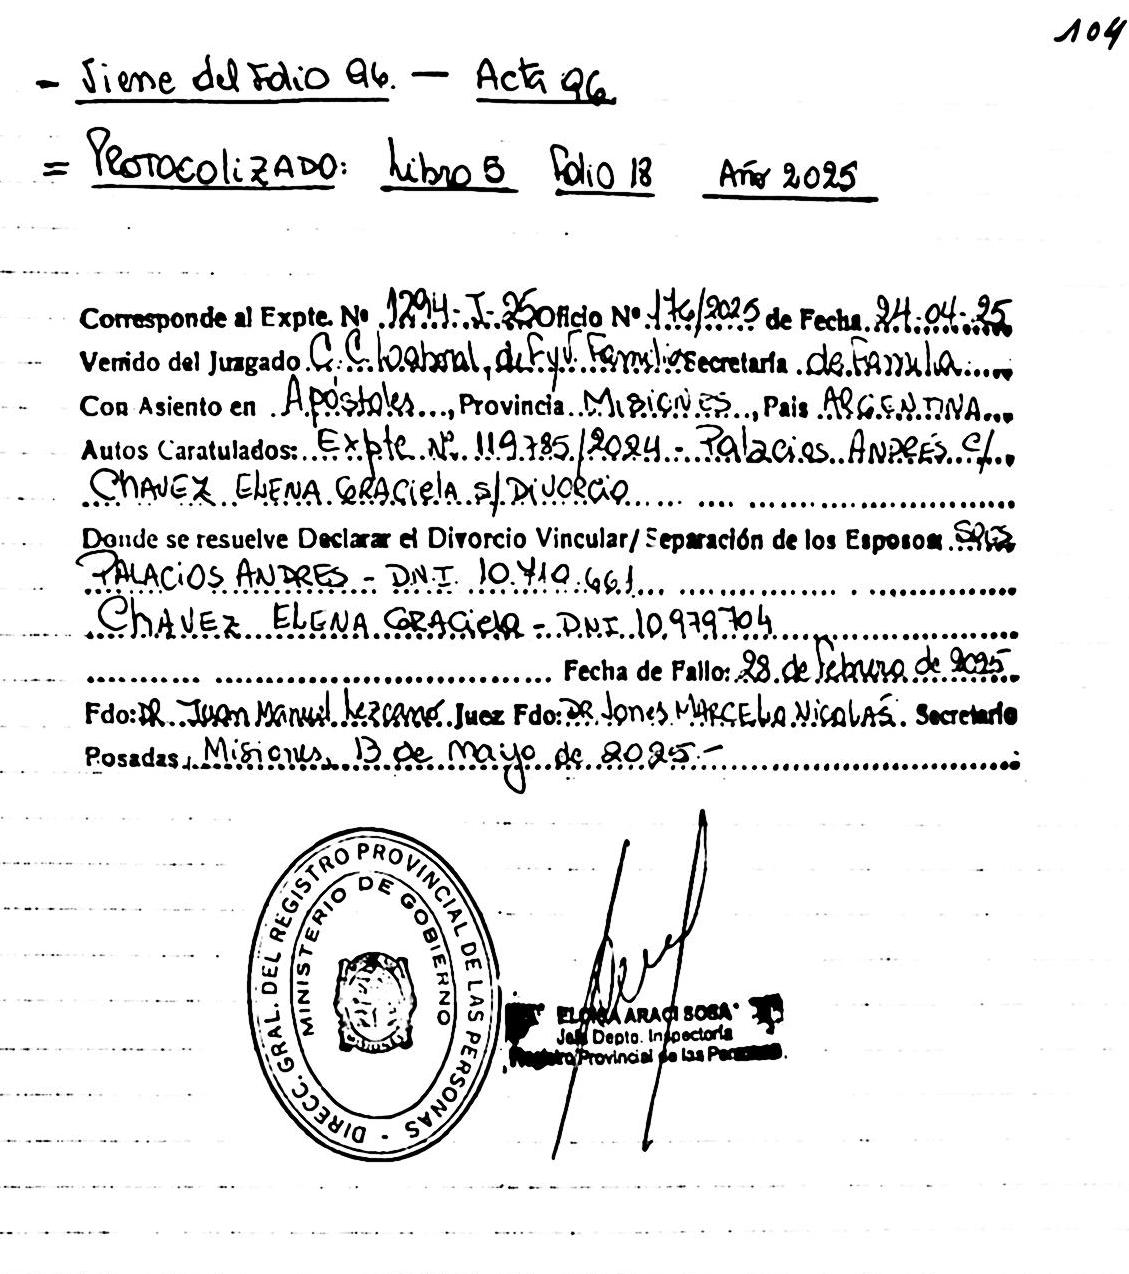 104
- Viene del Folio 96. — Acta 96
= PROTOCOLIZADO: Libro 5 Folio 18 Año 2025
Corresponde al Expte. Nº 1294-I-25 Oficio Nº 176/2025 de Fecha 24-04-25
Venido del Juzgado C.C. Laboral, de F y V. Familia Secretaría de Familia
Con Asiento en Apóstoles, Provincia MISIONES, Pais ARGENTINA
Autos Caratulados: Expte Nº 119785/2024 - Palacios ANDRÉS C/
CHAVEZ ELENA GRACiela s/ DiVORCiO
Donde se resuelve Declarar el Divorcio Vincular/ Separación de los Esposos Sres
PALACiOS ANDRES - D.N.I. 10.710.661
CHAVEZ ELENA GRACiela - DNI 10.979704
Fecha de Fallo: 28 de febrero de 2025
Fdo: DR. Juan Manuel Lezcano Juez Fdo: DR. Jones MARCELO NICOLÁS. Secretario
Posadas, Misiones, 13 de Mayo de 2025.-
DIRECC. GRAL. DEL REGISTRO PROVINCIAL DE LAS PERSONAS -
MINISTERIO DE GOBIERNO
ARACI SOSA
Jefa Depto. Inspectoría
Registro Provincial de las Personas.